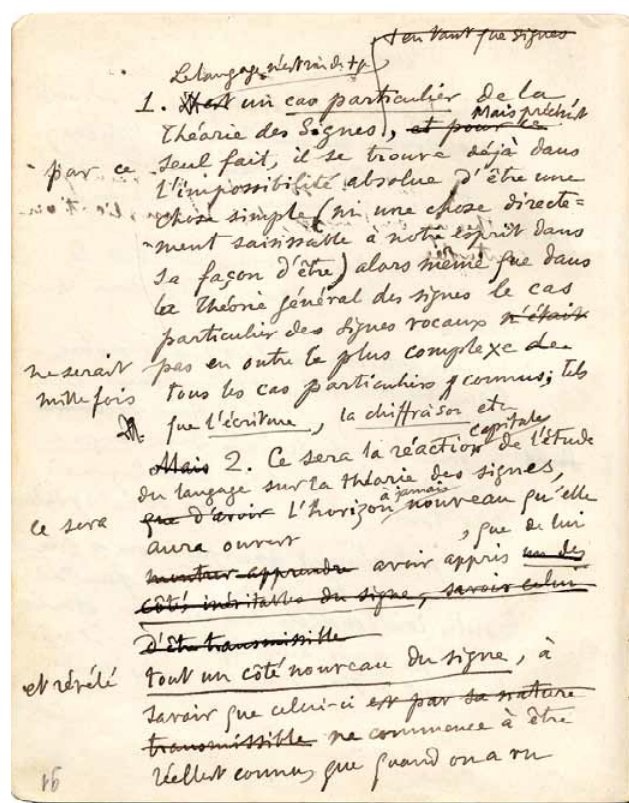 + en tant que signes
Le langage n'est rien de +
1. Il est un cas particulier de la
Mais précisément
Théorie des Signes, et pour ce
par ce seul fait, il se trouve déjà dans
l'impossibilité absolue d'être une
chose simple (ni une chose directe=
ment saisissable à notre esprit dans
sa façon d'être) alors même que dans
la théorie général des signes le cas
particulier des signes vocaux n'était
ne serait pas en outre le plus complexe de
mille fois tous les cas particuliers connus; tels
que l'écriture, la chiffraison etc
capitale
Mais 2. Ce sera la réaction de l'étude
du langage sur la théorie des signes,
à jamais
ce sera que d'avoir l'horizon nouveau qu'elle
aura ouvert , que de lui
montrer apprendre avoir appris un des
côtés inévitables du signe, savoir celui
d'être transmissible
et révélé tout un côté nouveau du signe, à
savoir que celui-ci est par sa nature
transmissible ne commence à être
réellemt connu, que quand on a vu
16